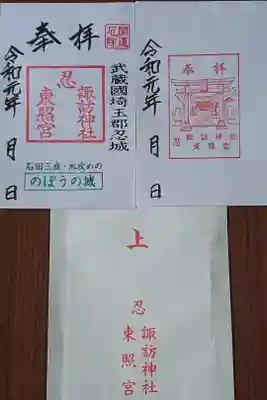 開運
厄除
奉拝
武蔵國埼玉郡忍城
諏訪神社
忍
東照宮
令和元年 月 日
石田三成・水攻めの
のぼうの城
奉拝
諏訪神社
忍
東照宮
令和元年 月 日
上
諏訪神社
忍
東照宮